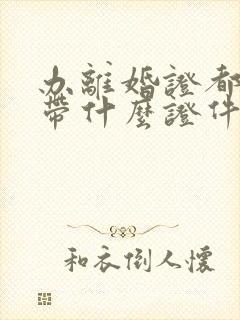 办離婚證都
帶什麼證件
和衣倒人懷